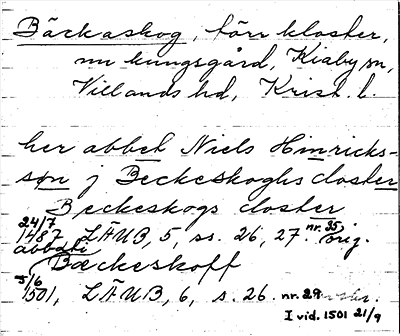 Bäckaskog, förr kloster,
nu kungsgård, Kiaby sn,
Villands hd, Krist. l.
her abbet Niels Hinricks-
søn j Beckeskoghs closter
Beckeskogs closter
24/7 1487 LÄUB, 5, ss. 26, 27. nr. 35 orig.
abbati
Bæckeskoff
5/6 1501, LÄUB, 6, s. 26. nr. 29
I vid. 1501 21/9